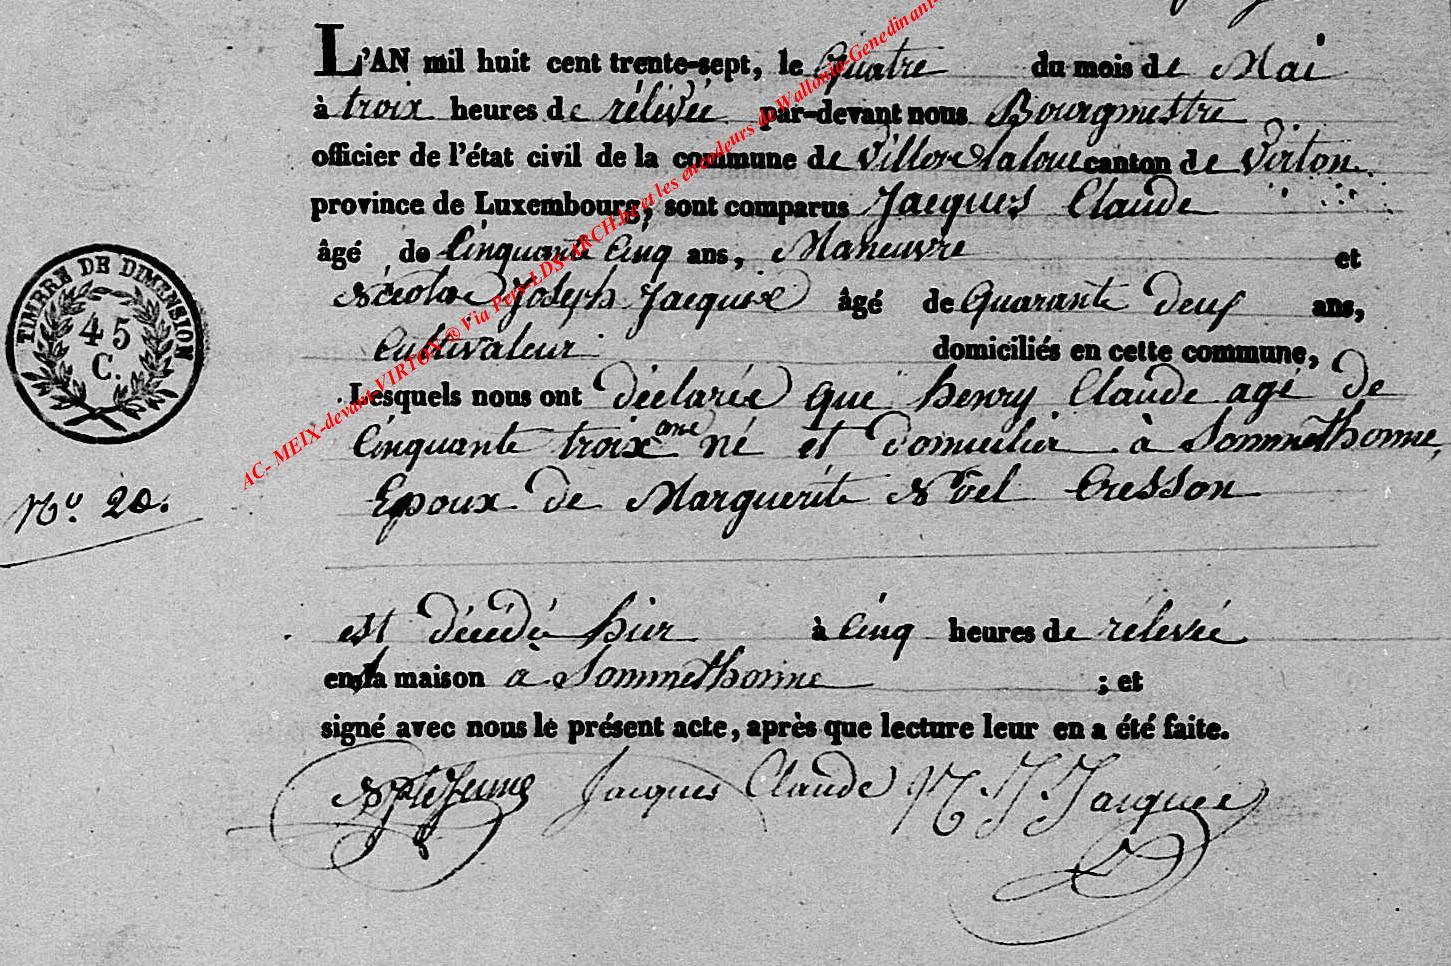 L'AN mil huit cent trente-sept, le Quatre du mois de Mai
à troix heures de rélévée par-devant nous Bourgmestre
officier de l'état civil de la commune de Villers-laloue canton de Virton
province de Luxembourg, sont comparus Jacques Claude
âgé de Cinquante Cinq ans, Maneuvre et
Nicolas Joseph Jacquié âgé de Quarante deux ans,
Cultivateur domiciliés en cette commune,
Lesquels nous ont déclarés que henry Claude agé de
Cinquante troix ans né et domicilié à Sommethonne,
Epoux de Marguerite Noël Cresson
est décédé hier à Cinq heures de rélévée
en sa maison à Sommethonne ; et
signé avec nous le présent acte, après que lecture leur en a été faite.
Jacques Claude N J Jacquié
TIMBRE DE DIMENSION
45
C.
N° 20.
AC- MEIX-devant-VIRTON ® Via Pers-LDS-ARCH.be et les encodeurs de Wallonia-Genedinant-